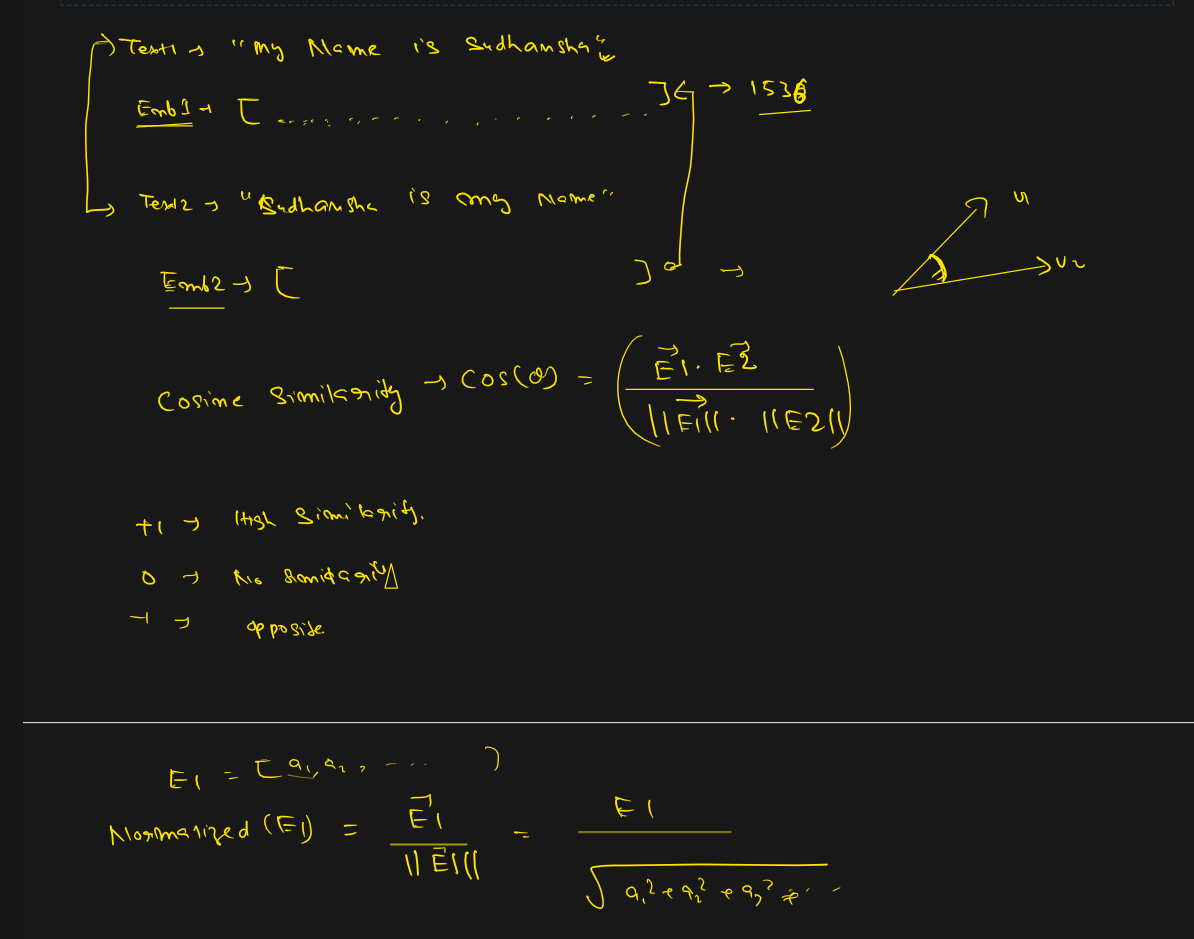 Text1 → "my Name is Sudhansha"
Emb1 → [ .................. ] → 1536
Text2 → "Sudhansha is my Name"
Emb2 → [ ] →
V1
V2
Cosine Similarity → Cos(θ) = ( E⃗1 · E⃗2 / ||E⃗1|| · ||E2|| )
+1 → High Similarity.
0 → No Similarity
-1 → opposite
E1 = [ a₁, a₂, - ... ]
Normalized (E1) = E⃗1 / ||E⃗1|| = E1 / √(a₁² + a₂² + a₃² + ...)